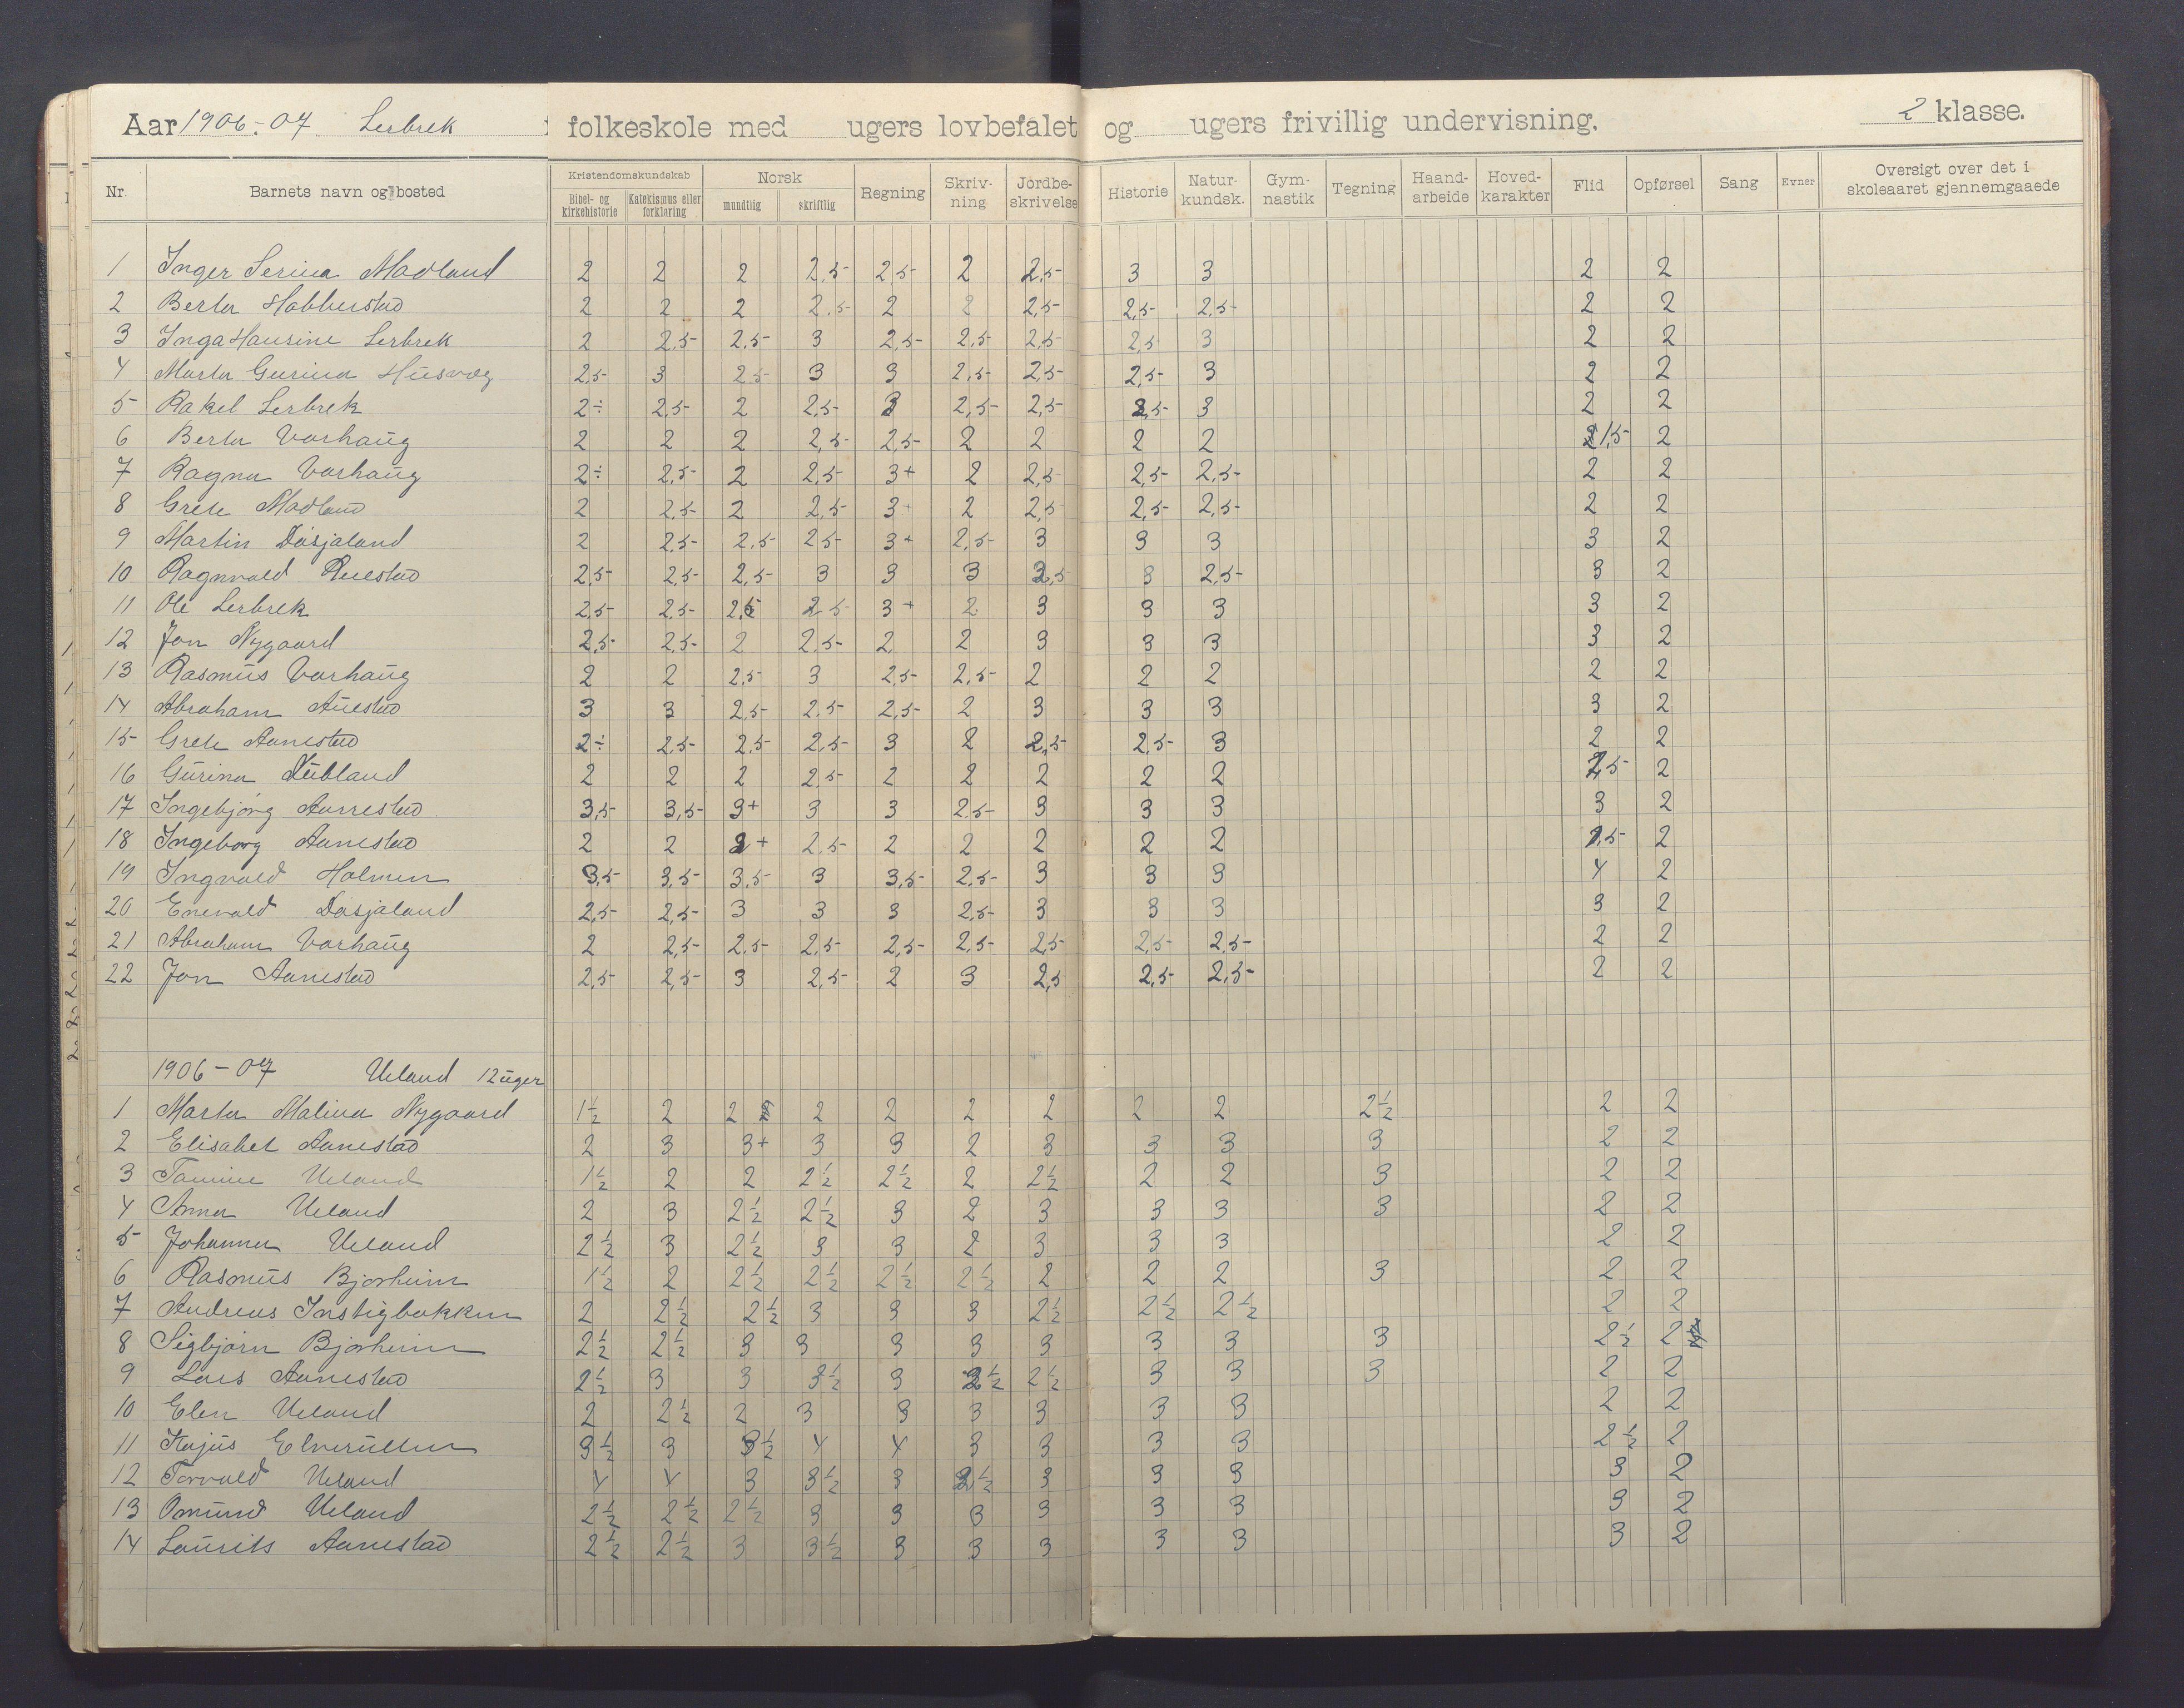 Aar 1906-07 Lerbrek folkeskole med ugers lovbefalet og ugers frivillig undervisning. 2 klasse.
Nr. Barnets navn og bosted Kristendomskundskab Bibel- og kirkehistorie Katekismus eller forklaring Norsk mundtlig skriftlig Regning Skriv-ning Jordbe-skrivelse Historie Natur-kundsk. Gym-nastik Tegning Haand-arbeide Hoved-karakter Flid Opførsel Sang Evner Oversigt over det i skoleaaret gjennemgaaede
1 Inger Serina Madland 2 2 2 2,5 2,5 2 2,5 3 3 2 2
2 Berta Habberstad 2 2 2 2,5 2 2 2,5 2,5 2,5 2 2
3 Inga Hansine Lerbrek 2 2,5 2,5 3 2,5 2,5 2,5 2,5 3 2 2
4 Marta Gurina Husvæg 2,5 3 2,5 3 3 2,5 2,5 2,5 3 2 2
5 Rakel Lerbrek 2÷ 2,5 2 2,5 3 2,5 2,5 2,5 3 2 2
6 Berta Varhaug 2 2 2 2,5 2,5 2 2 2 2 1,5 2
7 Ragna Varhaug 2÷ 2,5 2 2,5 3+ 2 2,5 2,5 2,5 2 2
8 Grete Madland 2 2,5 2 2,5 3+ 2 2,5 2,5 2,5 2 2
9 Martin Dåsjaland 2 2,5 2,5 2,5 3+ 2,5 3 3 3 3 2
10 Ragnvald 2,5 2,5 2,5 3 3 3 2,5 3 2,5 3 2
11 Ole Lerbrek 2,5 2,5 2,5 2,5 3+ 2 3 3 3 3 2
12 Jon Nygaard 2,5 2,5 2 2,5 2 2 3 3 3 3 2
13 Rasmus Varhaug 2 2 2,5 3 2,5 2,5 2 2 2 2 2
14 Abraham Auestad 3 3 2,5 2,5 2,5 2 3 3 3 3 2
15 Grete Aanestad 2÷ 2,5 2,5 2,5 3 2 2,5 2,5 3 2 2
16 Gurina Dubland 2 2 2 2,5 2 2 2 2 2 2,5 2
17 Ingebjørg Aarrestad 3,5 3,5 3+ 3 3 2,5 3 3 3 3 2
18 Ingeborg Aanestad 2 2 2+ 2,5 2 2 2 2 2 1,5 2
19 Ingvald Holmen 3,5 3,5 3,5 3 3,5 2,5 3 3 3 4 2
20 Enevald Dasjaland 2,5 2,5 3 3 3 2,5 3 3 3 3 2
21 Abraham Varhaug 2 2,5 2,5 2,5 2,5 2,5 2,5 2,5 2,5 2 2
22 Jon Aanestad 2,5 2,5 3 2,5 2 3 2,5 2,5 2,5 2 2
1906-07 Ueland 12 uger
1 Marta Malina Nygaard 1½ 2 2 2 2 2 2 2 2 2½ 2 2
2 Elisabet Aanestad 2 3 3+ 3 3 2 3 3 3 3 2 2
3 Tamine Ueland 1½ 2 2 2½ 2½ 2 2½ 2 2 3 2 2
4 Anna Ueland 2 3 2½ 2½ 3 2 3 3 3 3 2 2
5 Johanna Ueland 2½ 3 2½ 3 3 2 3 3 3 2 2
6 Rasmus Bjorheim 1½ 2 2½ 2½ 2½ 2½ 2 2 2 3 2 2
7 Andreas Instigbakken 2 2½ 2½ 3 3 3 2½ 2½ 2½ 2 2
8 Sigbjørn Bjorheim 2½ 2½ 3 3 3 3 3 3 3 3 2½ 2
9 Lars Aanestad 2½ 3 3 3½ 3 2½ 2½ 3 3 3 2 2
10 Elen Ueland 2 2½ 2 3 3 3 3 3 3 2 2
11 Kajus 3½ 3 3½ 4 4 3 3 3 3 2½ 2
12 Torvald Ueland 4 4 3 3½ 3 2½ 3 3 3 3 2
13 Omund Ueland 2½ 2½ 2½ 3 3 3 3 3 3 3 2
14 Laurits Aanestad 2½ 2½ 3 3½ 3 3 3 3 3 3 2